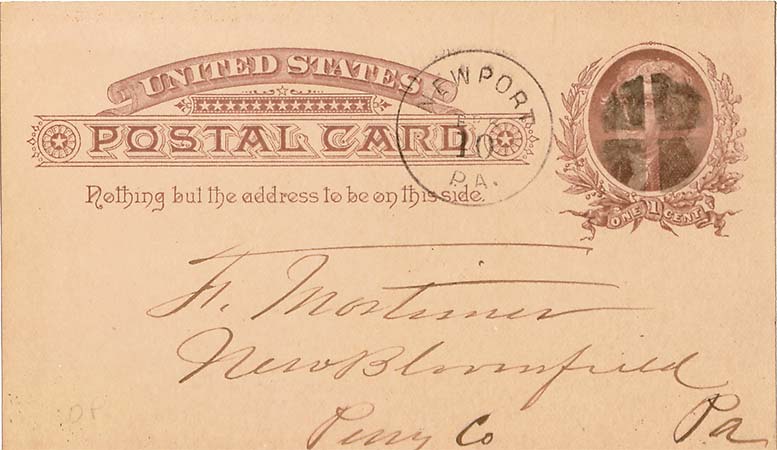 UNITED STATES
POSTAL CARD
NEWPORT
10
PA.
Nothing but the address to be on this side.
ONE 1 CENT
F. Mortimer
New Bloomfield
Perry Co Pa